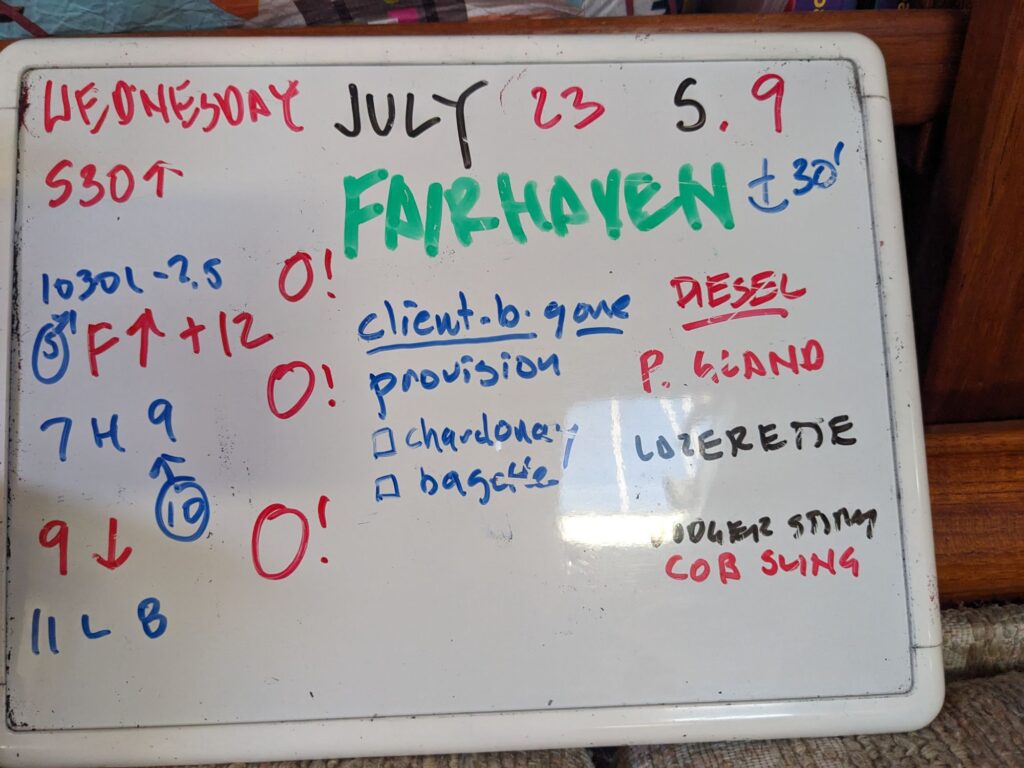 WEDNESDAY JULY 23 S. 9
S30↑
FAIRHAVEN ⚓30'
1030L -2.5 O!
5 F↑ +12
client.b.gone
DIESEL
O!
provision
P. GLAND
7 H 9
↑
10
□ chardonay
LAZERETTE
□
9 ↓ O!
COB SLING
11 L B